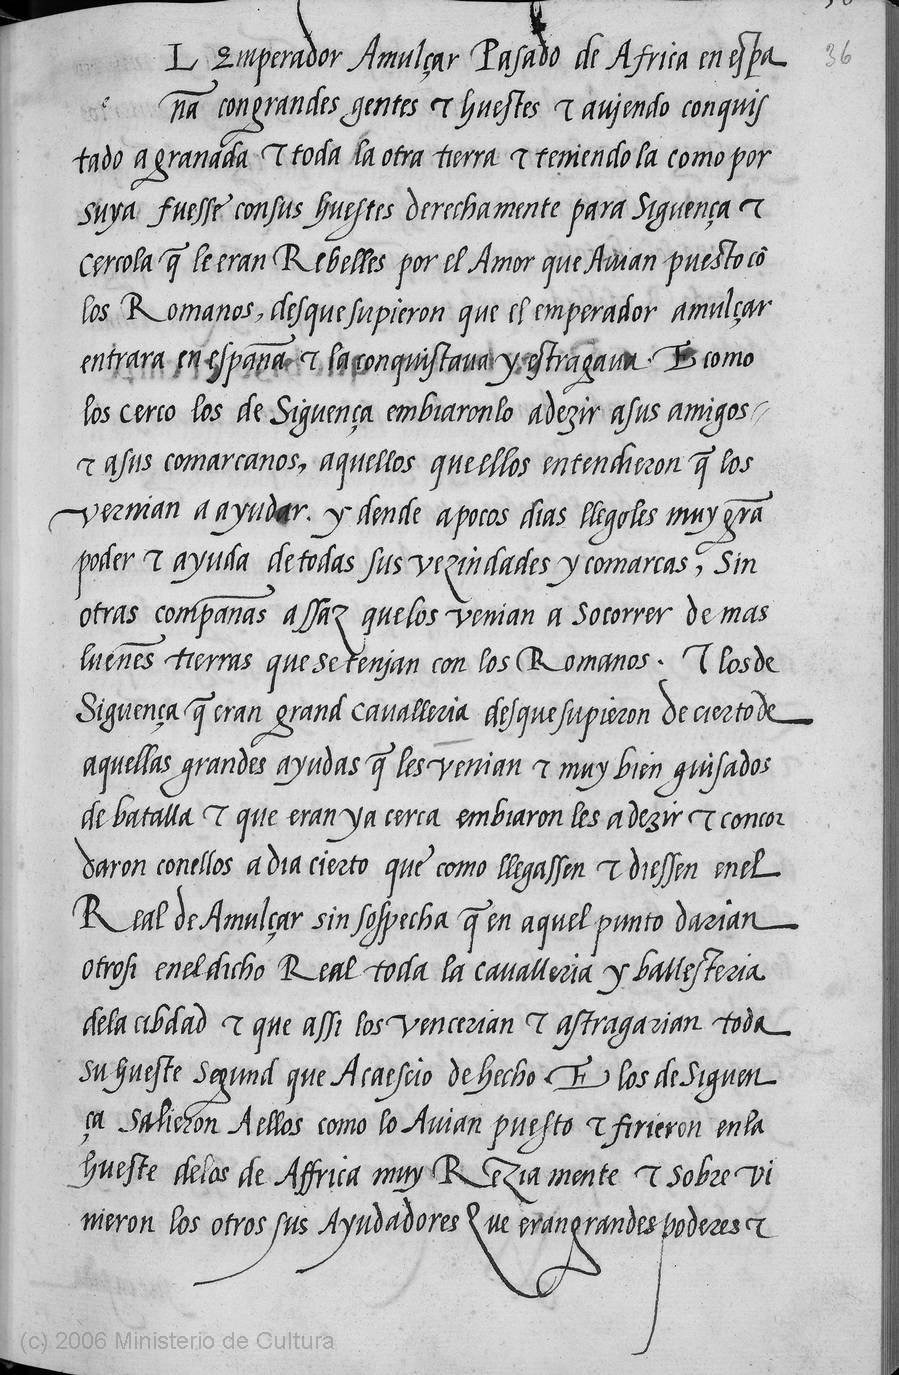 36
L Emperador Amulçar Pasado de Africa en espa
e
ña con grandes gentes τ huestes τ aujendo conquis
tado a granada τ toda la otra tierra τ teniendo la como por
suya fuesse con sus huestes derechamente para Siguença τ
Cercola q̃ le eran Rebelles por el Amor que Auian puesto cõ
los Romanos, desque supieron que el emperador amulçar
entrara en españa τ la conquistaua y estragaua. E como
los cerco los de Siguença embiaronlo adezir asus amigos
τ asus comarcanos, aquellos que ellos entendieron q̃ los
vernian a ayudar. y dende apocos dias llegoles muy grã
poder τ ayuda de todas sus vezindades y comarcas, Sin
otras compañas assaz que los venian a Socorrer de mas
lueñes tierras que se tenjan con los Romanos. τ los de
Siguença q̃ eran grand cavalleria desque supieron de cierto de
aquellas grandes ayudas q̃ les venian τ muy bien guisados
de batalla τ que eran ya cerca embiaron les adezir τ concor
daron conellos a dia cierto que como llegassen τ diessen enel
Real de Amulçar sin sospecha q̃ en aquel punto darian
otrosi enel dicho Real toda la cavalleria y ballesteria
dela cibdad τ que assi los vencerian τ astragarian toda
su hueste segund que Acaescio de hecho. E los de Siguen
ça salieron A ellos como lo Auian puesto τ firieron enla
hueste delos de Affrica muy Rezia mente τ sobre vi
nieron los otros sus Ayudadores Que eran grandes poderes τ
(c) 2006 Ministerio de Cultura